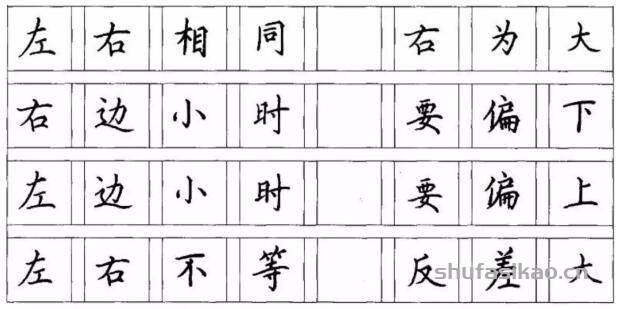 左右相同 右为大
右边小时 要偏下
左边小时 要偏上
左右不等 反差大
shufasikao.cn